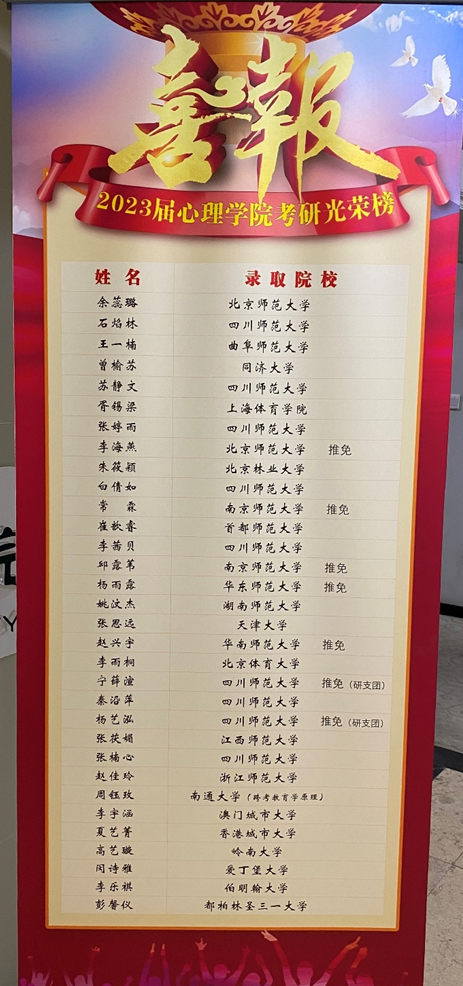 喜報
2023届心理学院考研光荣榜
姓名 录取院校
余蕊璐 北京师范大学
石焰林 四川师范大学
王一楠 曲阜师范大学
曾榆苏 同济大学
苏静文 四川师范大学
胥锡梁 上海体育学院
张婷雨 四川师范大学
李海燕 北京师范大学 推免
朱筱颖 北京林业大学
白倩如 四川师范大学
常霖 南京师范大学 推免
崔歆睿 首都师范大学
李茜贝 四川师范大学
邱露苇 南京师范大学 推免
杨雨露 华东师范大学 推免
姚汶杰 湖南师范大学
张思远 天津大学
赵兴宇 华南师范大学 推免
李雨桐 北京体育大学
宁薛潼 四川师范大学 推免(研支团)
秦沿萍 四川师范大学
杨艺泓 四川师范大学 推免(研支团)
张茯媚 江西师范大学
张楠心 四川师范大学
赵佳玲 浙江师范大学
周钰玫 南通大学(跨考教育学原理)
李宇涵 澳门城市大学
夏艺菁 香港城市大学
高艺璇 岭南大学
闵诗雅 爱丁堡大学
李乐祺 伯明翰大学
彭馨仪 都柏林圣三一大学